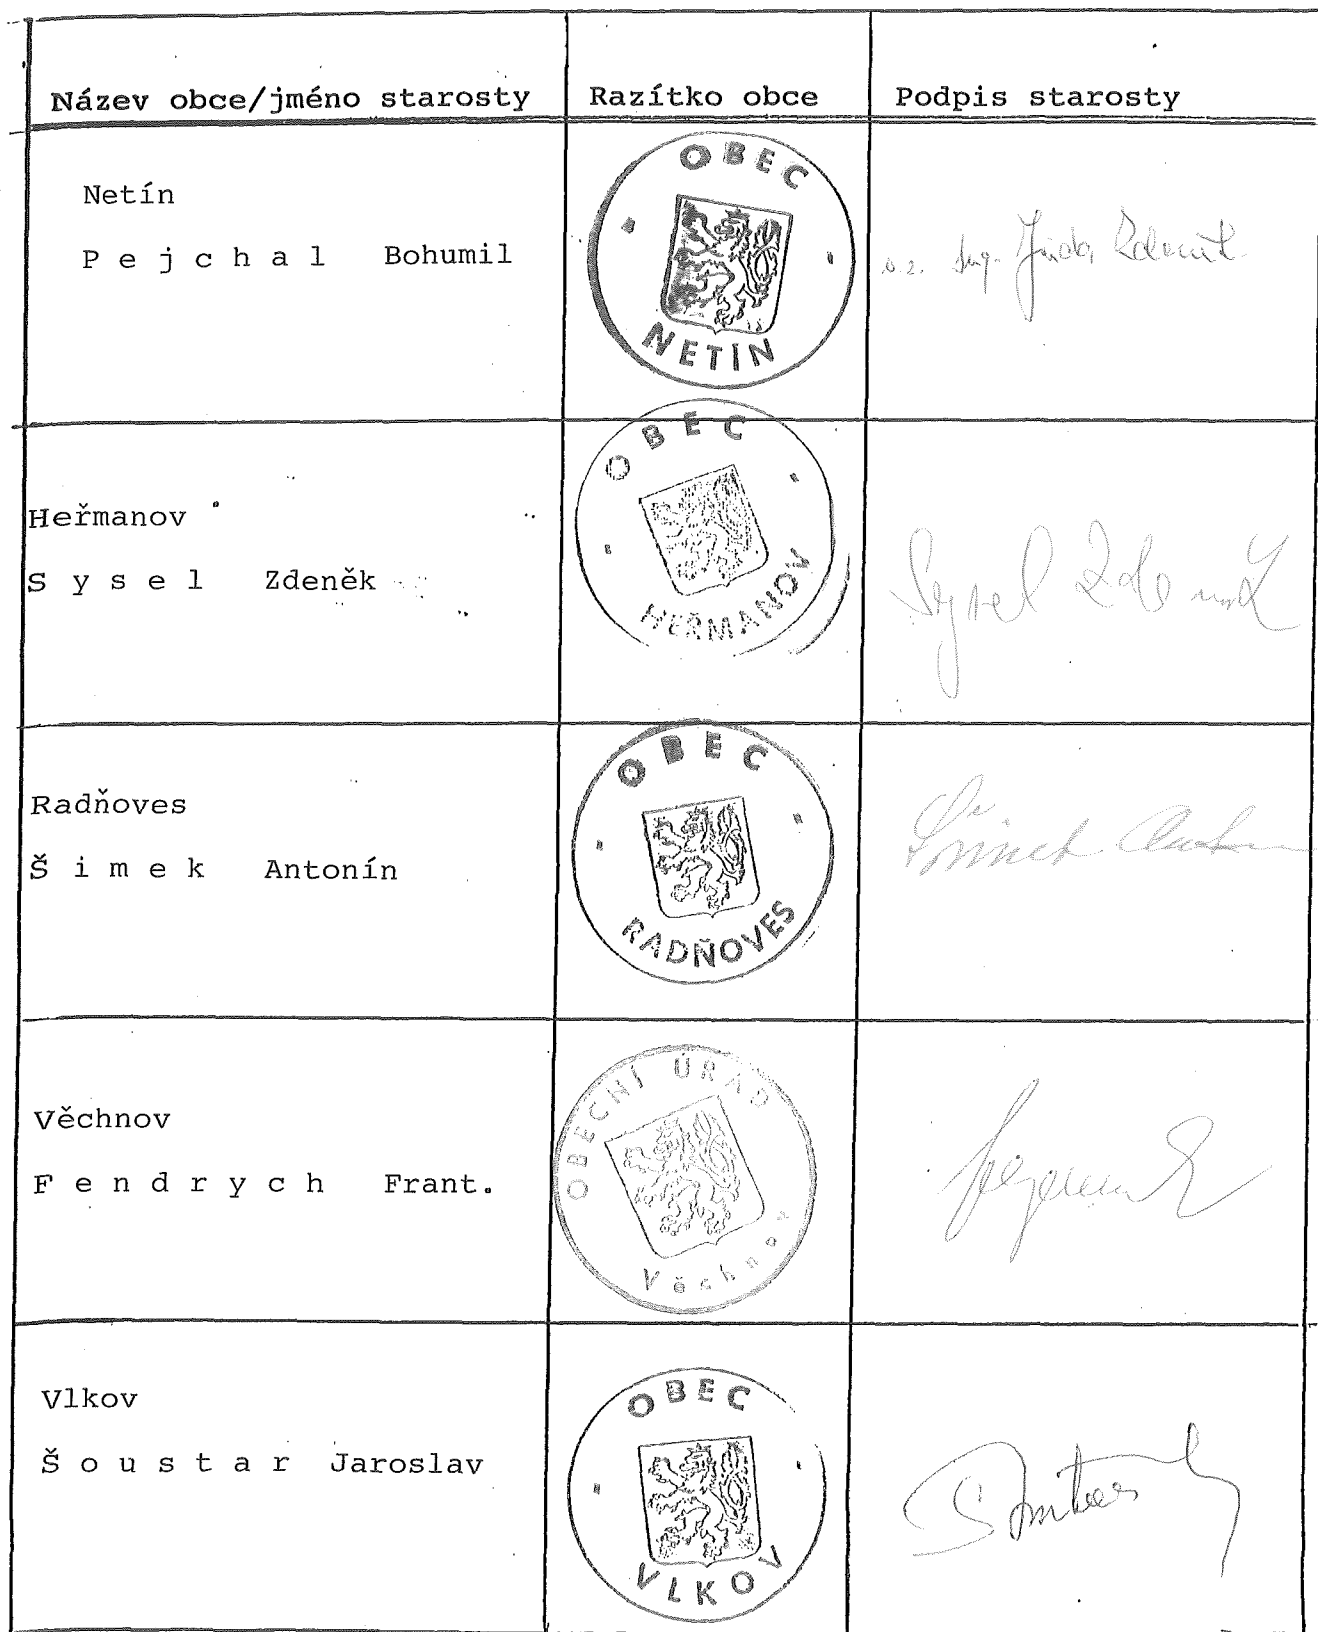 Název obce/jméno starosty Razítko obce Podpis starosty
Netín
P e j c h a l Bohumil
OBEC
NETÍN
Heřmanov
S y s e l Zdeněk
OBEC
HEŘMANOV
Sysel Zdeněk
Radňoves
Š i m e k Antonín
OBEC
RADŇOVES
Šimek
Věchnov
F e n d r y c h Frant.
OBECNÍ ÚŘAD
Věchnov
Vlkov
Š o u s t a r Jaroslav
OBEC
VLKOV